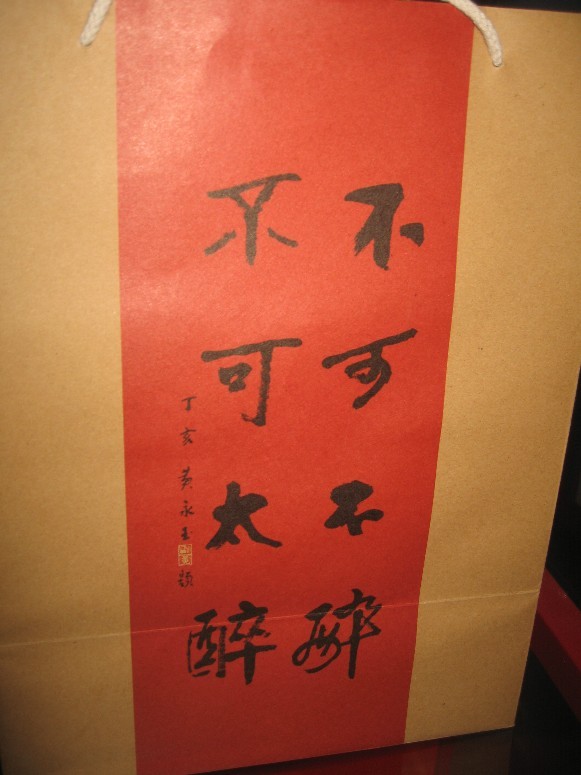 不可不醉
不可太醉
丁亥黄永玉题